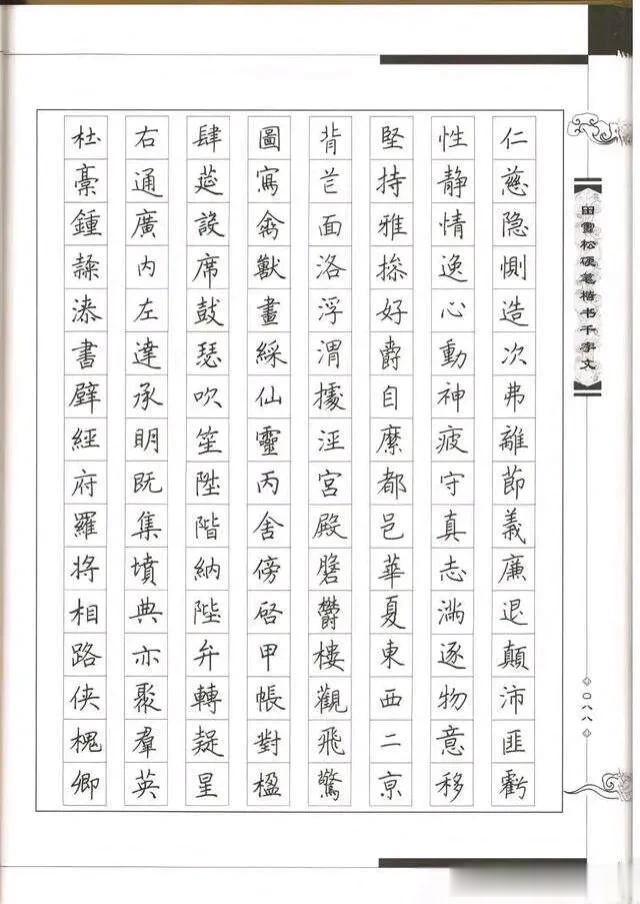 仁慈隐惻造次弗離節義廉退顛沛匪虧
性静情逸心動神疲守真志満逐物意移
堅持雅操好爵自縻都邑華夏東西二京
背芒面洛浮渭據涇宮殿盤鬱樓觀飛驚
圖寫禽獸畫綵仙靈丙舍傍啓甲帳對楹
肆莚設席鼓瑟吹笙陞階納陛弁轉疑星
右通廣内左達承明既集墳典亦聚羣英
杜稾鍾隸漆書壁經府羅将相路侠槐卿
田雪松硬笔楷书千字文
〇八八